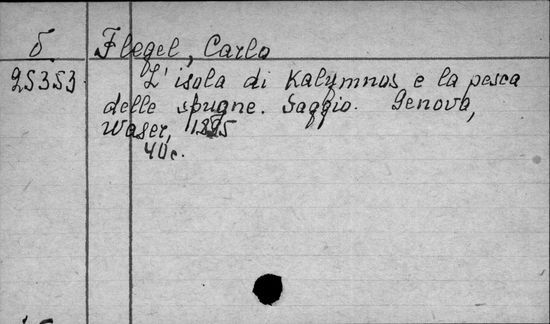 б.
Flegel, Carlo
25353
L'isola di Kalymnos e la pesca
delle spugne. Saggio. Genova,
Waser,
40 c.